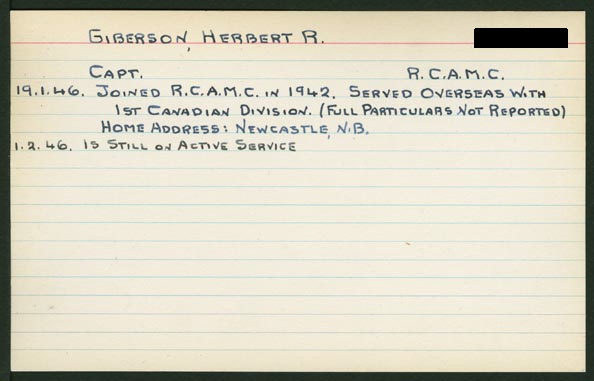 GIBERSON, HERBERT R.
CAPT. R.C.A.M.C.
19.1.46. JOINED R.C.A.M.C. IN 1942. SERVED OVERSEAS WITH
1ST CANADIAN DIVISION. (FULL PARTICULARS NOT REPORTED)
HOME ADDRESS: NEWCASTLE, N.B.
1.2.46. IS STILL ON ACTIVE SERVICE